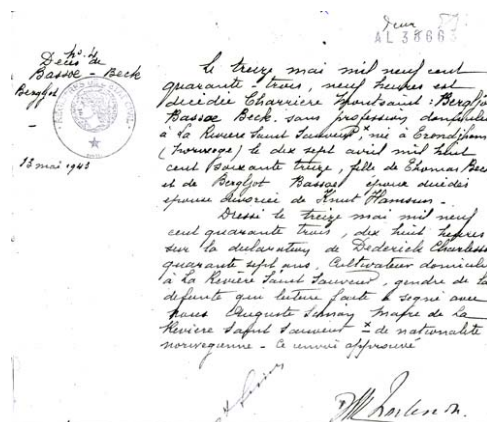 AL 38663
No. 4
Décès de
Bassoe - Beck
Bergljot
-
13 mai 1943
Le treize mai mil neuf cent
quarante - trois, neuf heures est
décédée Charrière : Bergljot
Bassoe Beck. sans profession domiciliée
à La Rivière Saint Sauveur, x née à Trondjhem
(Norwège) le dix sept avril mil huit
cent soixante treize, fille de Thomas Beck
et de Bergljot Bassoe époux décédés
épouse divorcée de Knut Hamsun -
Dressé le treize mai mil neuf
cent quarante trois, dix huit heures
sur la déclaration de Dederich Charlesson
quarante sept ans, Cultivateur domicilié
à La Rivière Saint Sauveur, gendre de la
défunte qui lecture faite a signé avec
nous Auguste Maire de La
Rivière Saint Sauveur x de nationalité
norwégienne - Ce renvoi approuvé